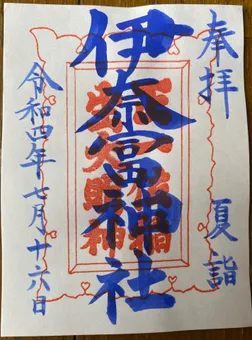 奉拝
夏詣
伊奈冨神社
令和四年七月十六日